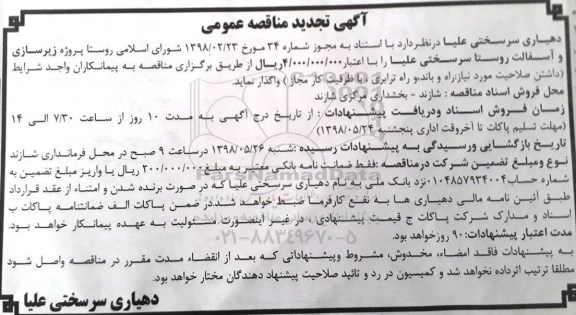 آگهی تجدید مناقصه عمومی
دهیاری سرسختی علیا درنظردارد با استناد به مجوز شماره ۳۴ مورخ ۱۳۹۸/۰۲/۲۳ شورای اسلامی روستا پروژه زیرسازی
و آسفالت روستا سرسختی علیا را با اعتبار ۴/۰۰۰/۰۰۰/۰۰۰ریال از طریق برگزاری مناقصه به پیمانکاران واجد شرایط
(داشتن صلاحیت مورد نیاز:راه و باند،و راه ترابری ،با ظرفیت کار مجاز ) واگذار نماید.
محل فروش اسناد مناقصه : شازند - بخشداری مرکزی شازند
زمان فروش اسناد ودریافت پیشنهادات : از تاریخ درج آگهی به مدت ۱۰ روز از ساعت ۷/۳۰ الی ۱۴
(مهلت تسلیم پاکات تا آخروقت اداری پنجشنبه ۱۳۹۸/۰۵/۲۴)
تاریخ بازگشایی ورسیدگی به پیشنهادات رسیده :شنبه ۱۳۹۸/۰۵/۲۶ درساعت ۹ صبح در محل فرمانداری شازند
نوع ومبلغ تضمین شرکت درمناقصه :فقط ضمانت نامه بانکی معتبر به مبلغ ۲۰۰/۰۰۰/۰۰۰ ریال یا واریز مبلغ تضمین به
شماره حساب۰۱۰۴۸۵۷۹۳۴۰۰۴نزد بانک ملی به نام دهیاری سرسختی علیا که در صورت برنده شدن و امتناء از عقد قرارداد
طبق آئین نامه مالی دهیاری ها به نفع کارفرما ضبط خواهد شد،در ضمن پاکات الف ضمانتنامه پاکات ب
اسناد و مدارک شرکت پاکات ج قیمت پیشنهادی ، در غیر اینصورت مسئولیت به عهده پیمانکار خواهد بود.
مدت اعتبار پیشنهادات: ۹۰ روزخواهد بود.
به پیشنهادات فاقد امضاء، مخدوش، مشروط وپیشنهاداتی که بعد از انقضاء مدت مقرر در مناقصه واصل شود
مطلقا ترتیب اثرداده نخواهد شد و کمیسیون در رد و تائید صلاحیت پیشنهاد دهندگان مختار خواهد بود.
دهیاری سرسختی علیا
ParsNamadData
۰۲۱-۸۸۳۴۹۶۷۰-۵